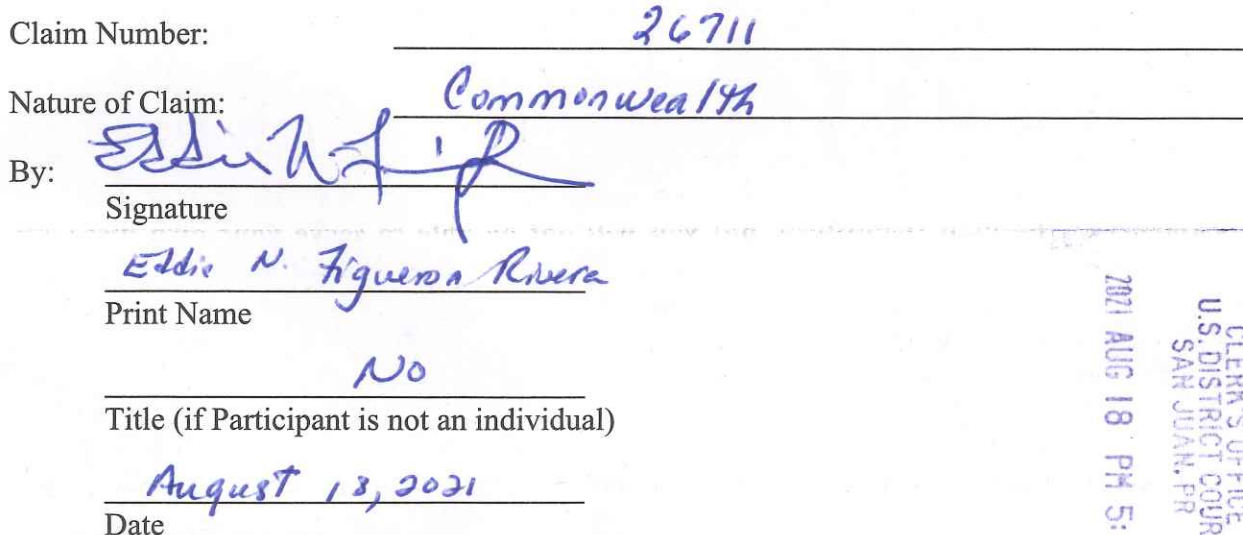 Claim Number: 26711
Nature of Claim: Commonwealth
By: Eddie N. Fig
Signature
Eddie N. Figueroa Rivera
Print Name
No
Title (if Participant is not an individual)
August 13, 2021
Date
CLERK'S OFFICE
U.S. DISTRICT COUR
SAN JUAN, PR
2021 AUG 18 PM 5: